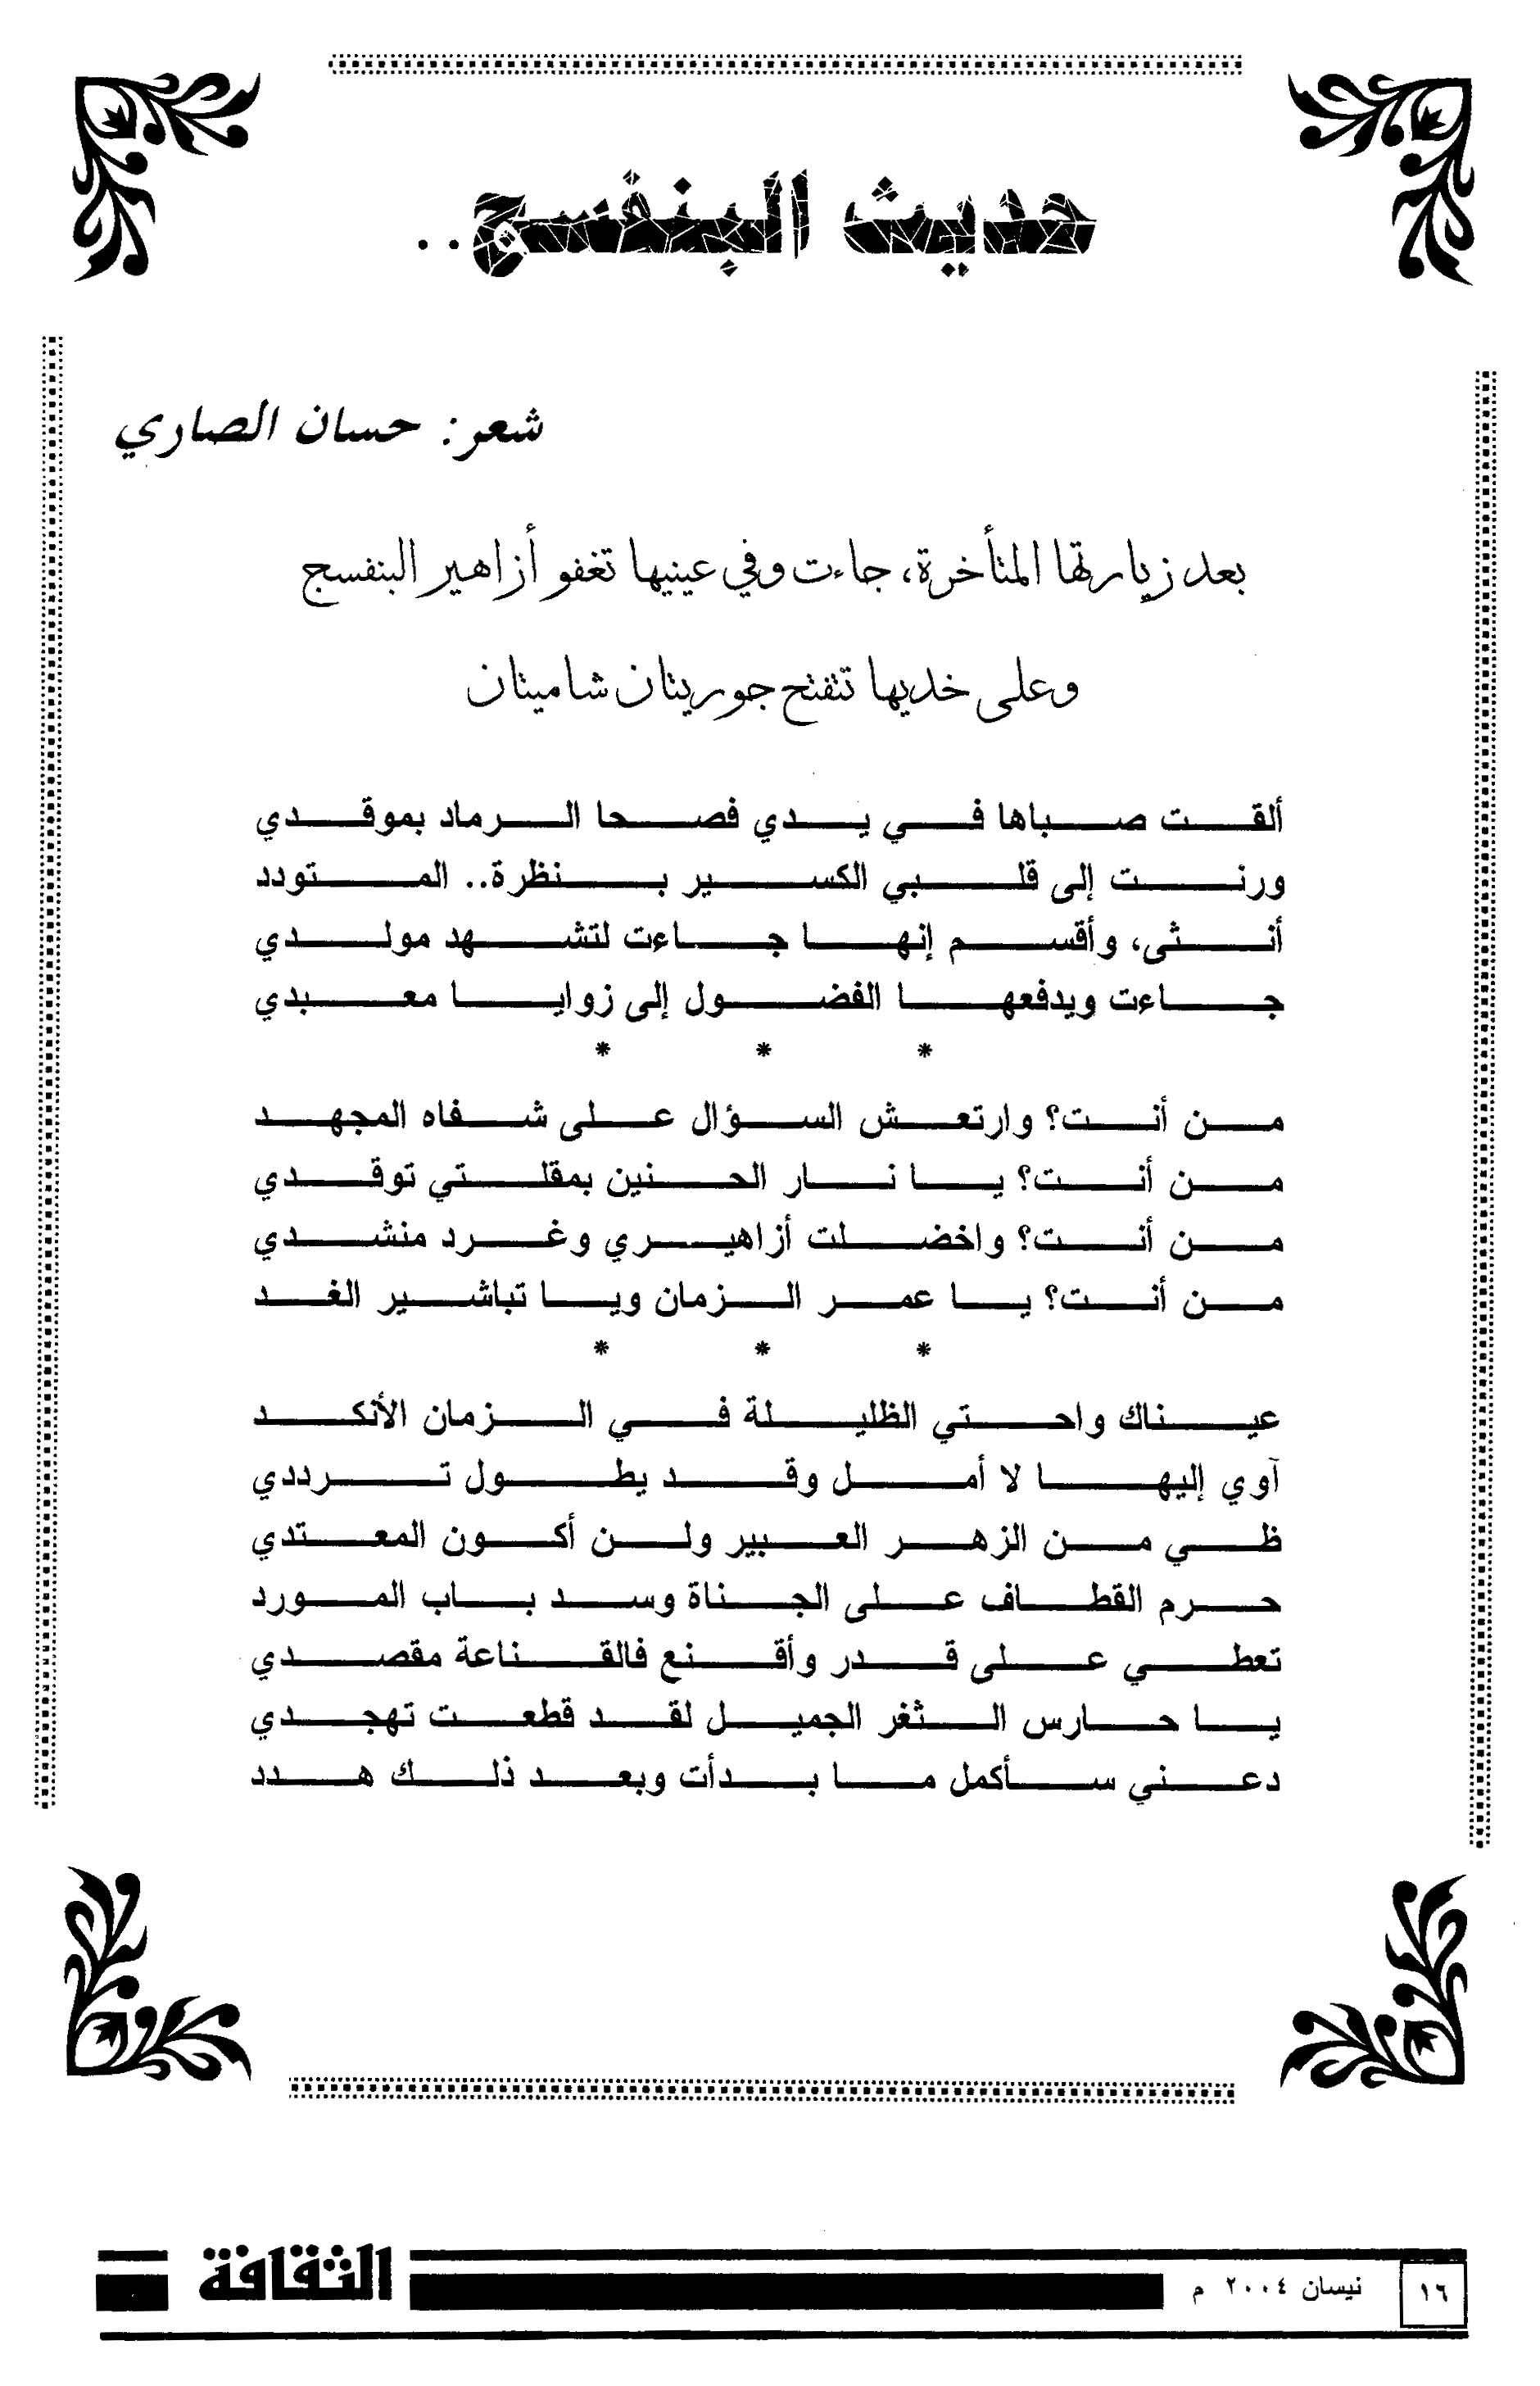 حديث البنفسج..
شعر: حسان الصاري
بعد زيارتها المتأخرة، جاءت وفي عينيها تغفو أزاهير البنفسج
وعلى خديها تتفتح جوريتان شاميتان
ألقت صباها في يدي فصحا الرماد بموقدي
ورنت إلى قلبي الكسير بنظرة.. المتودد
أنثى، وأقسم إنها جاءت لتشهد مولدي
جاءت ويدفعها الفضول إلى زوايا معبدي
* * *
من أنت؟ وارتعش السؤال على شفاه المجهد
من أنت؟ يا نار الحنين بمقلتي توقدي
من أنت؟ واخضلت أزاهيري وغرد منشدي
من أنت؟ يا عمر الزمان ويا تباشير الغد
* * *
عيناك واحتي الظليلة في الزمان الأنكد
آوي إليها لا أمل وقد يطول ترددي
ظي من الزهر العبير ولن أكون المعتدي
حرم القطاف على الجناة وسد باب المورد
تعطي على قدر وأقنع فالقناعة مقصدي
يا حارس الثغر الجميل لقد قطعت تهجدي
دعني سأكمل ما بدأت وبعد ذلك هدد
الثقافة
نيسان ٢٠٠٤ م
١٦